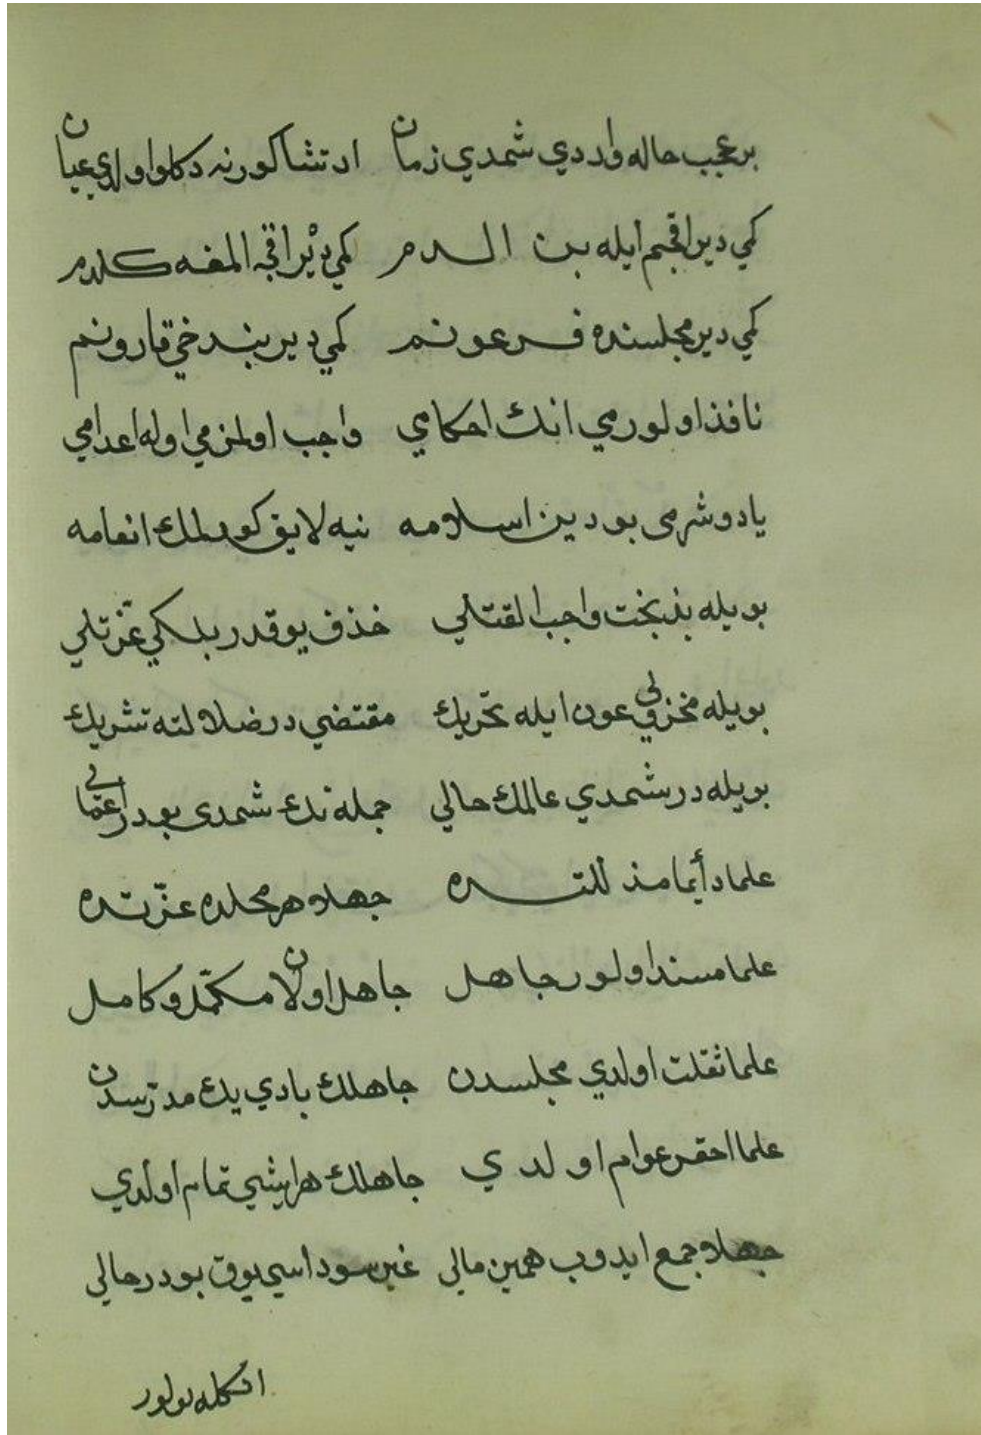 بر عجب حاله واردي شمدي زمان ايت تماشا كورنه دكلو اولدي عيان
كمي دير اقچم ايله بن الدم كمي دير اقچه المغه كلدم
كمي دير مجلسنده فرعونم كمي دير بنده خي قارونم
نافذ اولورمي انك احكامي واجب اولمزمي اوله اعدامي
يادوشرمي بو دين اسلامه نيه لايق كورلمك انعامه
بويله بدبخت واجب القتلي خذف يوقدر بلكي عزتلي
بويله مخزولي عون ايله تحريك مقتضي در ضلالته تشريك
بويله در شمدي عالمك حالي جمله نك شمدي بودر اعمالي
علما دأيما مذلتده جهلا هر محلده عزتده
علما مسند اولور جاهل جاهل اولان مكمّل و كامل
علما ثقلت اولدي مجلسدن جاهلك بادي يك مدرسدن
علما احقر عوام اولدي جاهلك هر ايشي تمام اولدي
جهلا جمع ايدوب همين مالي غير سوداسي يوق بودر حالي
اكله بولور